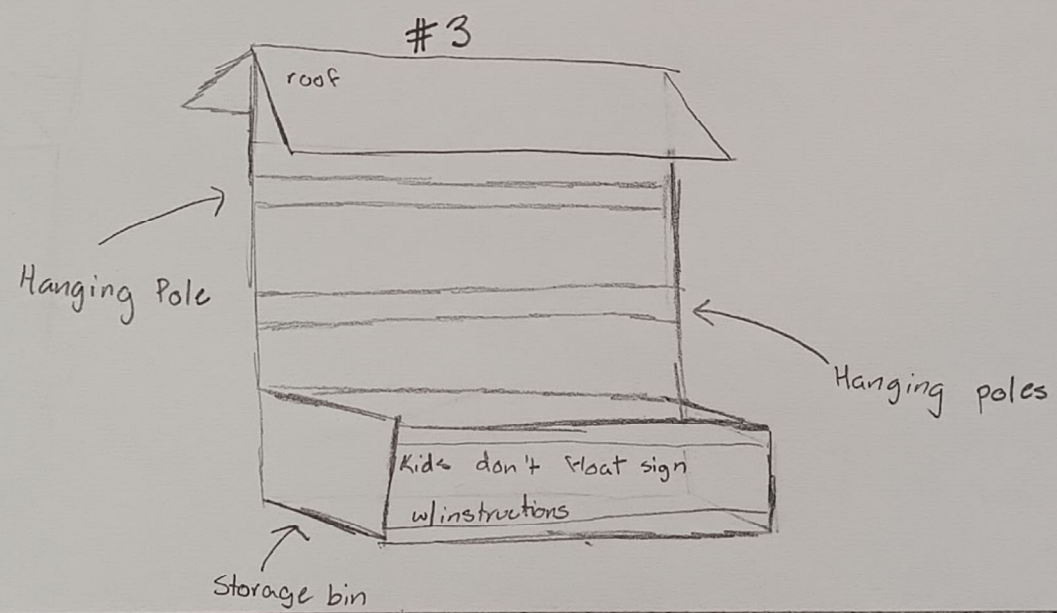 #3
roof
Hanging Pole
Hanging poles
Kids don't float sign
w/instructions
Storage bin